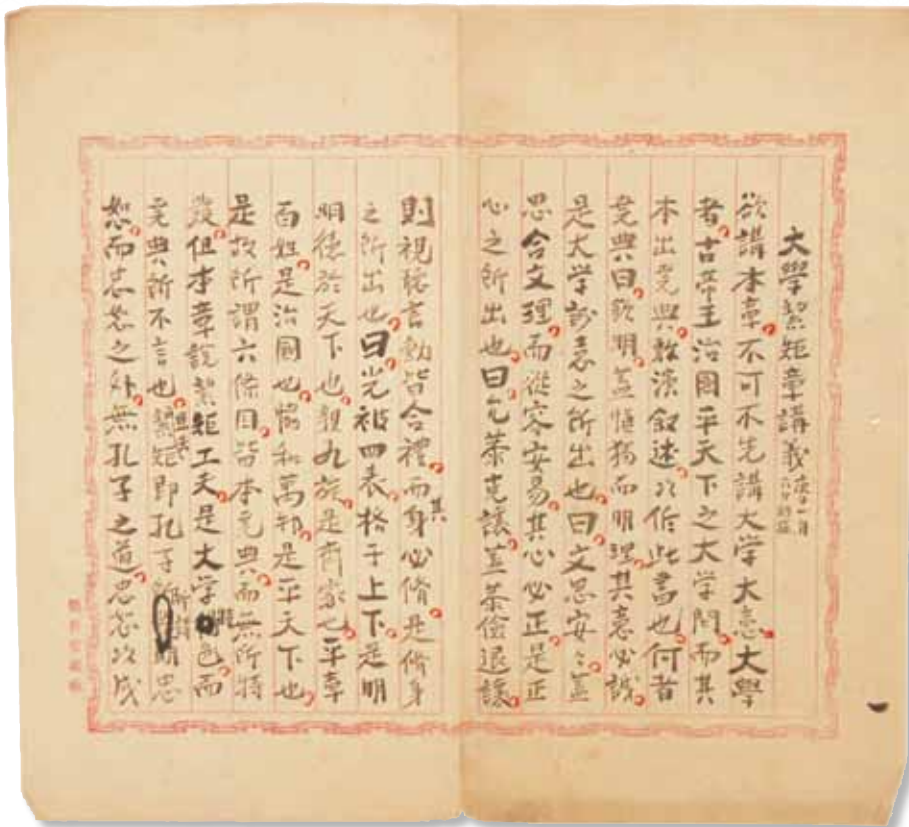 大學絜矩章講義
欲講本章不可不先講大学大意大學
者古帝王治國平天下之大学問而其
本出堯典敷演叙述以作此書也何者
堯典曰欽明蓋慎獨而明理其意必誠
是大学誠意之所出也曰文思安々蓋
思合文理而從容安易其心必正是正
心之所出也曰允恭克讓蓋恭儉退讓
則視聴言動皆合禮而其身必脩是脩身
之所出也曰光被四表格于上下是明
明德於天下也親九族是齊家也平章
百姓是治國也協和萬邦是平天下也
是故所謂六條目皆本堯典而無所特
發但本章説絜矩工夫是大学 色而
堯典所不言也絜矩即孔子所 忠
恕而忠恕之外無孔子之道忠恕以成